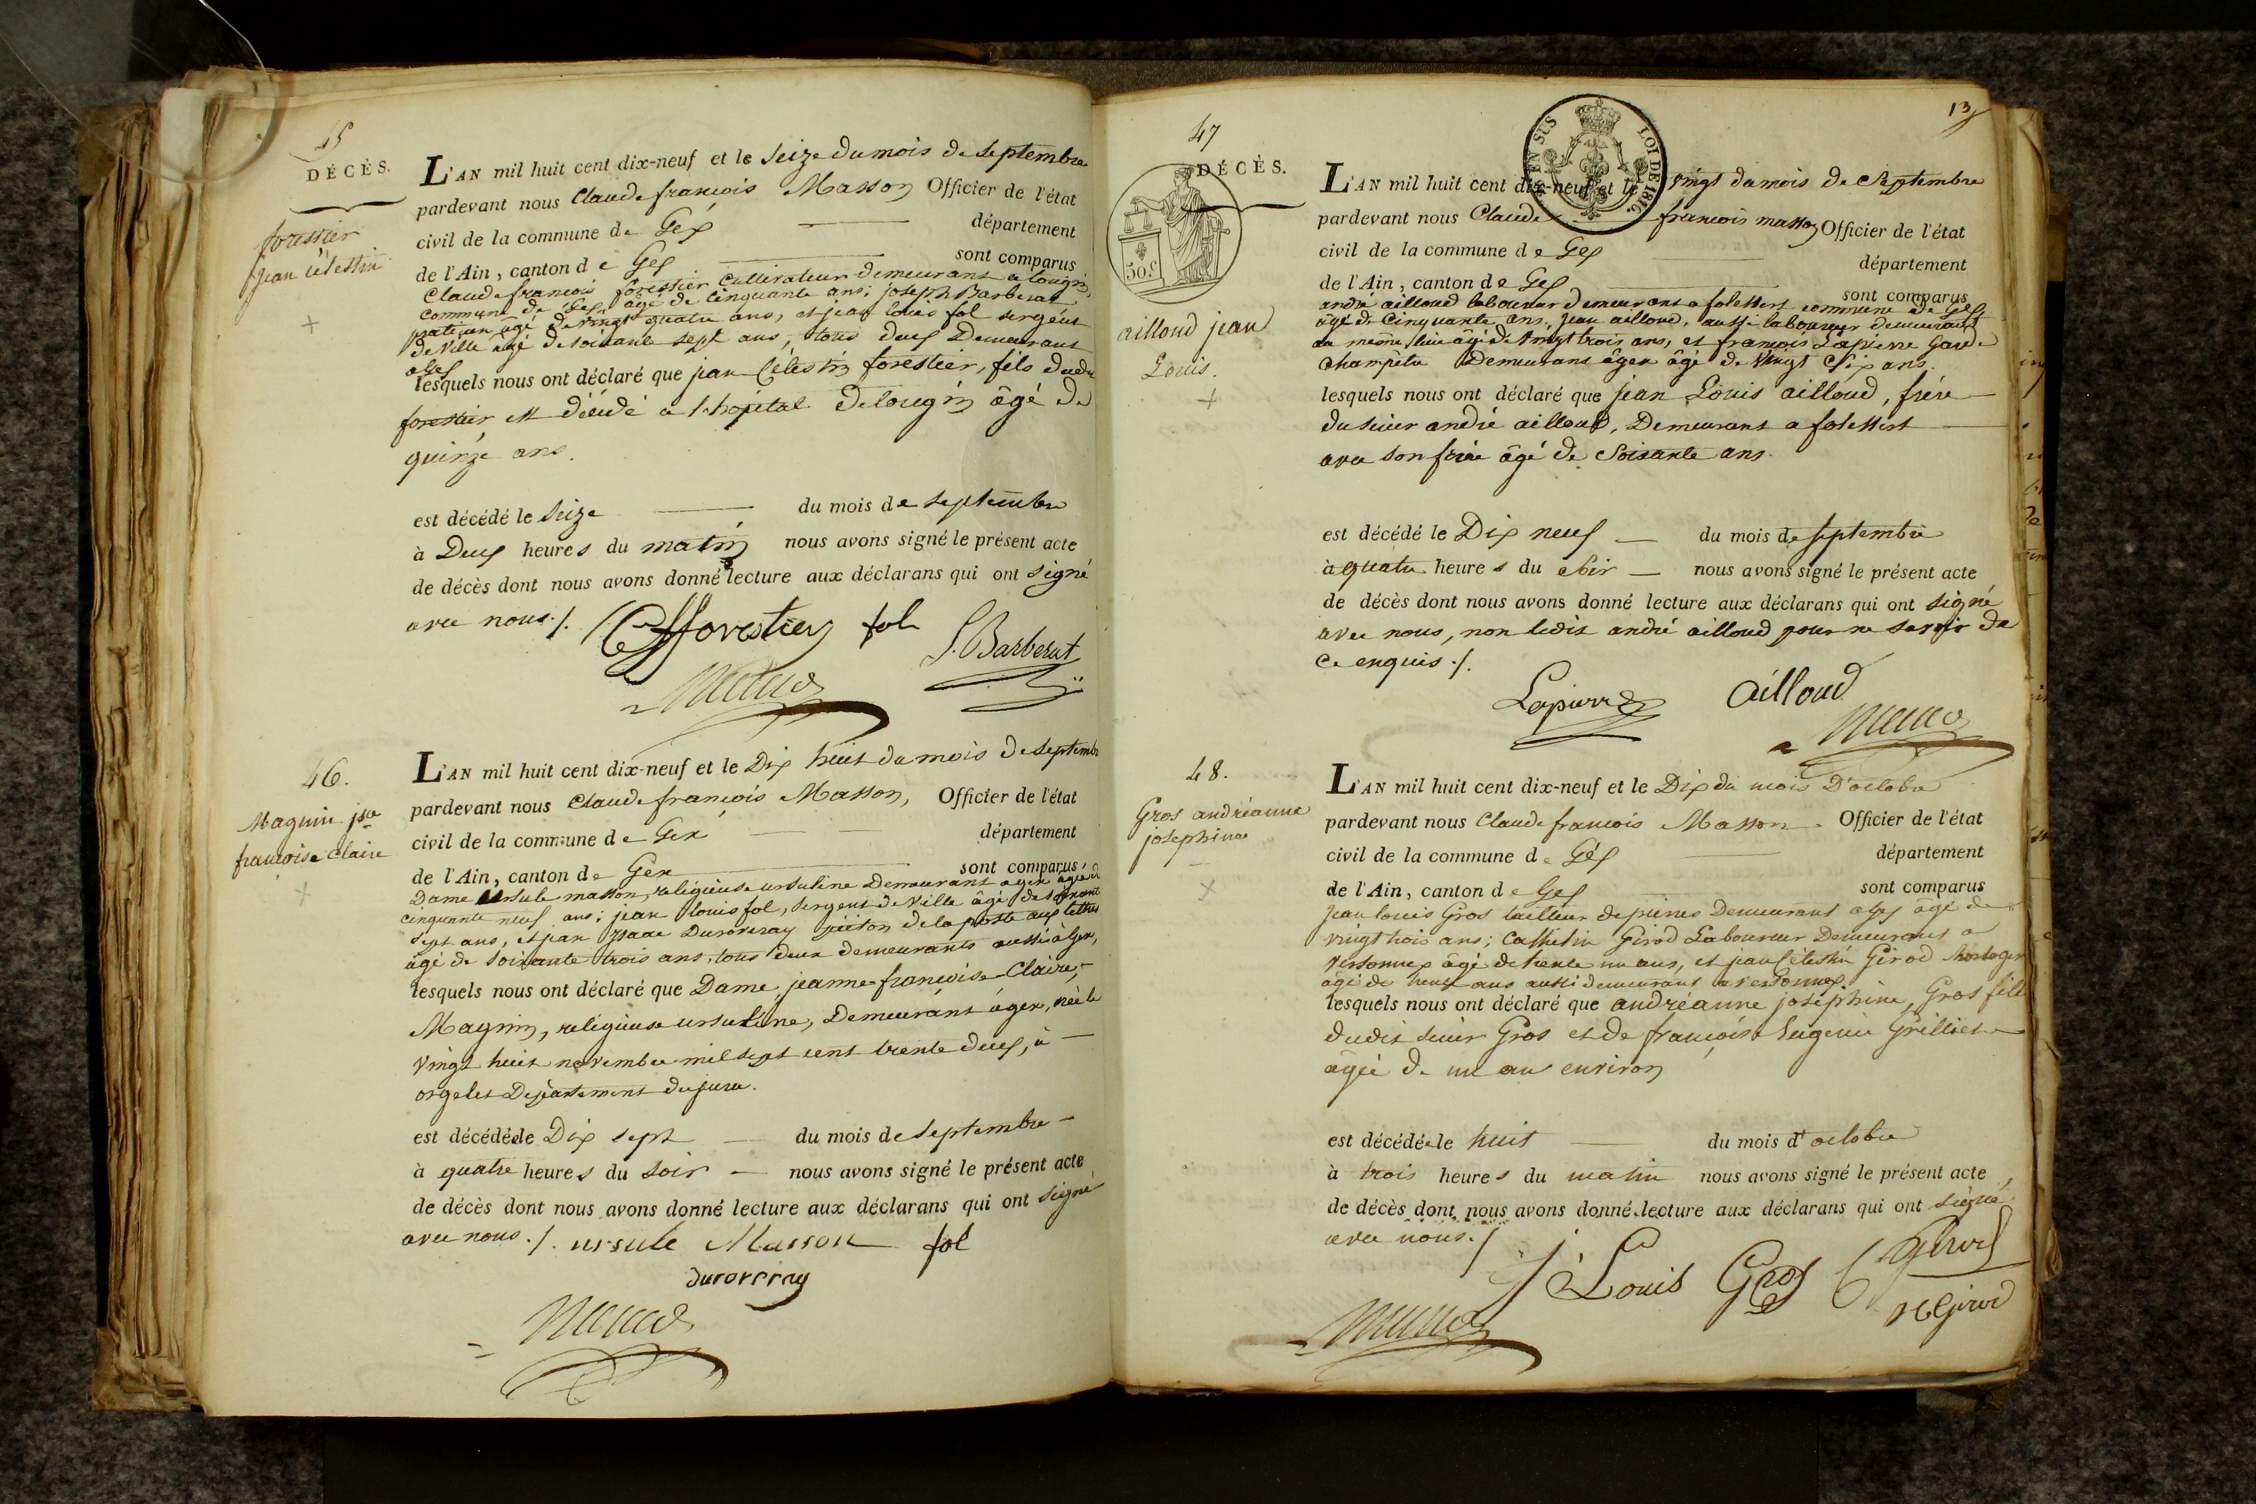 45
DÉCÈS.
forestier
jean Célestin
L'AN mil huit cent dix-neuf et le seize du mois de septembre
pardevant nous Claude françois Masson Officier de l'état
civil de la commune de Gex département
de l'Ain, canton de Gex sont comparus
Claude françois forestier Cultivateur demeurant a tougin,
commune de Gex, âgé de cinquante ans; joseph Barberat
praticien âgé de vingt quatre ans, et jean louis fol sergent
de ville âgé de soixante sept ans, tous deux Demeurant
a Gex
lesquels nous ont déclaré que jean Célestin forestier, fils dudit
forestier est décédé a l'hopital de tougin âgé de
quinze ans.
est décédé le seize du mois de septembre
à Deux heures du matin nous avons signé le présent acte
de décès dont nous avons donné lecture aux déclarans qui ont signé
avec nous./.
forestier fol
J. Barberat
46.
Magnin jne
françoise Claire
L'AN mil huit cent dix-neuf et le Dix huit du mois de septembre
pardevant nous Claude françois Masson, Officier de l'état
civil de la commune de Gex département
de l'Ain, canton de Gex sont comparus
Dame Ursule masson, religieuse ursuline Demeurant a gex âgée de
cinquante neuf ans; jean louis fol, sergent de ville âgé de soixante
sept ans, et jean ysaac Duroveray piéton de la poste aux lettres
âgé de soixante trois ans, tous deux demeurants aussi à Gex,
lesquels nous ont déclaré que Dame jeanne françoise Claire,
Magnin, religieuse ursuline, Demeurant à gex, née le
vingt huit novembre mil sept cent trente deux, à
orgelet Département du jura.
est décédée le Dix sept du mois de septembre
à quatre heures du soir nous avons signé le présent acte
de décès dont nous avons donné lecture aux déclarans qui ont signé
avec nous./. ursule Masson fol
duroveray
13
47
DÉCÈS.
EN SUS LOI DE 1816.
50 c
ailloud jean
Louis.
L'AN mil huit cent dix-neuf et le vingt du mois de Septembre
pardevant nous Claude françois masson Officier de l'état
civil de la commune de Gex département
de l'Ain, canton de Gex sont comparus
andré ailloud laboureur demeurant a folessert commune de Gex
âgé de Cinquante ans, jean ailloud, aussi laboureur demeurant
au même lieu âgé de vingt trois ans, et françois Lapierre Garde
Champêtre Demeurans âgex âgé de vingt Six ans
lesquels nous ont déclaré que jean Louis ailloud, frère
du sieur andré ailloud, Demeurant a folessert
avec son frère âgé de Soixante ans.
est décédé le Dix neuf du mois de septembre
à quatre heures du soir nous avons signé le présent acte
de décès dont nous avons donné lecture aux déclarans qui ont signé
avec nous, non ledit andré ailloud pour ne savoir de
ce enquis./.
Lapierre ailloud
48.
Gros andréanne
josephine
L'AN mil huit cent dix-neuf et le Dix du mois D'octobre
pardevant nous Claude françois Masson Officier de l'état
civil de la commune de Gex département
de l'Ain, canton de Gex sont comparus
Jean louis Gros tailleur de pierres Demeurant a Gex âgé de
vingt trois ans; Cathelin Girod Laboureur Demeurant a
Versonnex âgé de trente un ans, et jean Célestin Girod horloger
âgé de ans aussi demeurant a versonnex
lesquels nous ont déclaré que andréanne joséphine, Gros fille
dudit sieur Gros et de françoise Eugenie Grilliet
âgée de un an environ
est décédée le huit du mois d'octobre
à trois heures du matin nous avons signé le présent acte
de décès dont nous avons donné lecture aux déclarans qui ont signé
avec nous./
J Louis Gros Girod
Girod